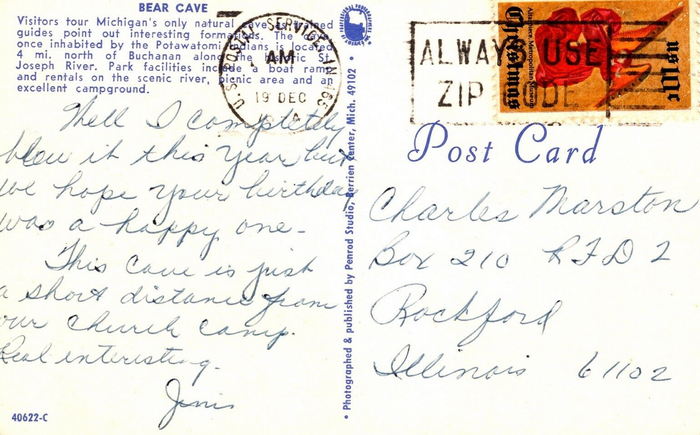 BEAR CAVE
Visitors tour Michigan's only natural cave as trained
guides point out interesting formations. The
once inhabited by the Potawatomi Indians is located
4 mi. north of Buchanan along the St.
Joseph River. Park facilities include a boat ramp
and rentals on the scenic river, picnic area and an
excellent campground.
U.S. POSTAL SERVICE
AM
19 DEC
ALWAYS USE
ZIP CODE
Christmas
US 8c
Post Card
Well I completely
blew it this year but
we hope your birthday
was a happy one.
This cave is just
a short distance from
our church camp.
Real interesting.
40622-C
• Photographed & published by Penrod Studio, Berrien Center, Mich. 49102 •
Charles Marston
Box 210 RFD 2
Rockford
Illinois 61102